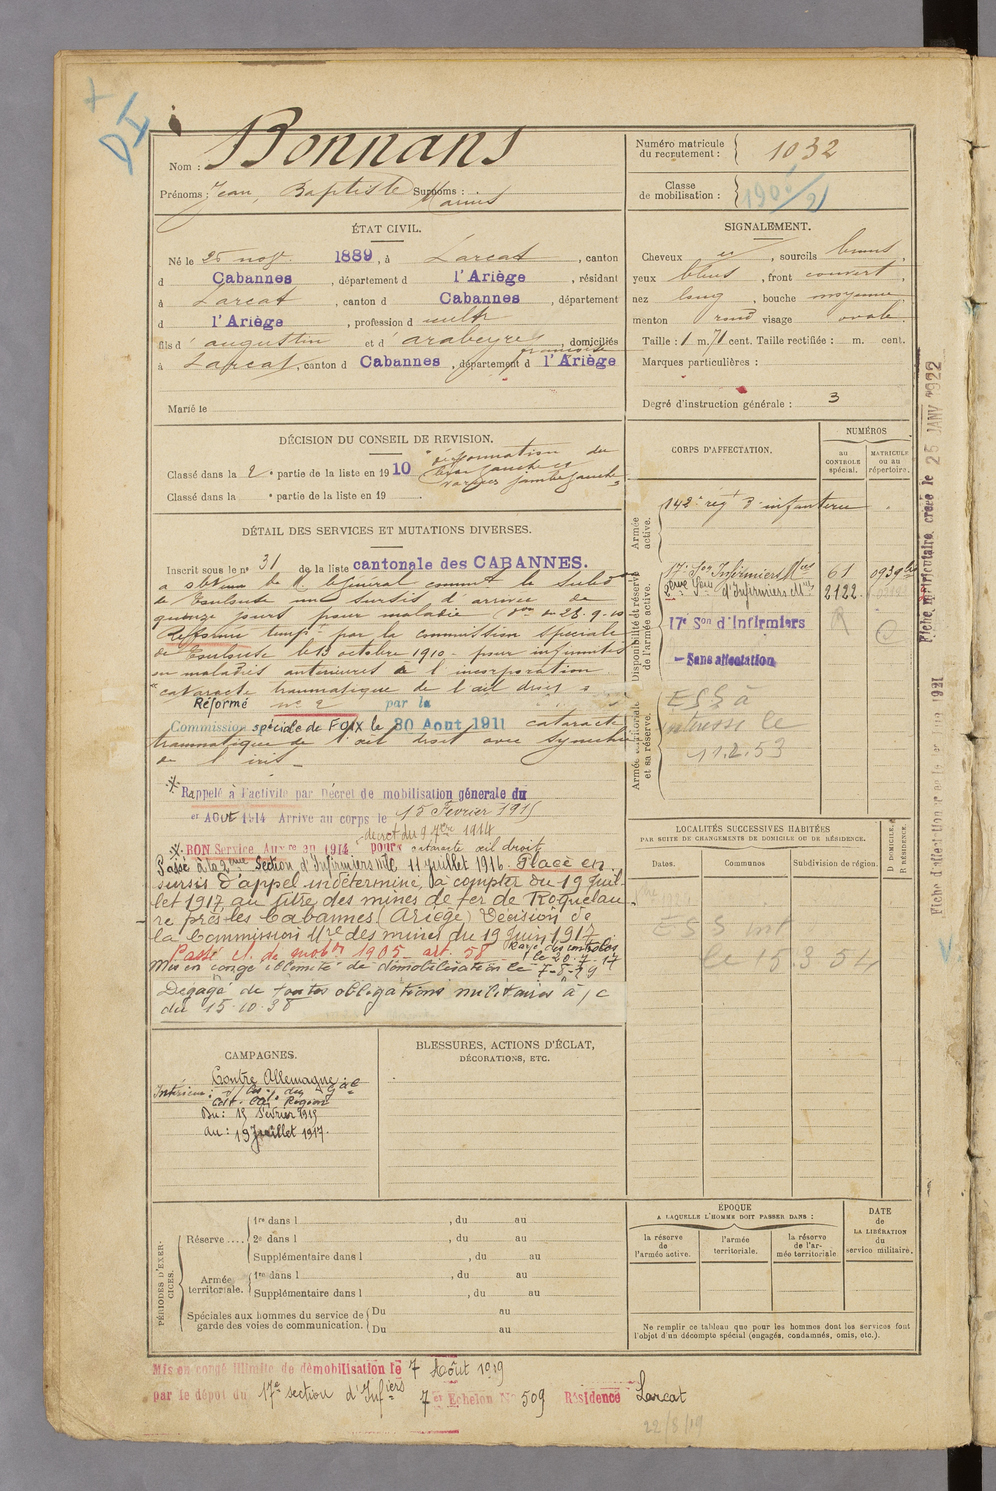 DI
Nom : Bonnans
Prénoms : Jean, Baptiste Surnoms :
Numéro matricule du recrutement : 1032
Classe de mobilisation :
ÉTAT CIVIL.
Né le 25 nov. 1889, à Larcat, canton
d Cabannes, département d l'Ariège, résidant
à Larcat, canton d Cabannes, département
d l'Ariège, profession d cultr
fils d' augustin et d' arabeyre françoise, domiciliés
à Larcat, canton d Cabannes, département d l'Ariège
Marié le
SIGNALEMENT.
Cheveux et, sourcils bruns,
yeux bleus, front couvert,
nez long, bouche moyenne,
menton rond visage ovale.
Taille : 1 m. 71 cent. Taille rectifiée : m. cent.
Marques particulières :
Degré d'instruction générale : 3
DÉCISION DU CONSEIL DE REVISION.
Classé dans la 2e partie de la liste en 1910 déformation du
bras gauche et
varices jambe gauche
Classé dans la e partie de la liste en 19 .
DÉTAIL DES SERVICES ET MUTATIONS DIVERSES.
Inscrit sous le no 31 de la liste cantonale des CABANNES.
a obtenu de M. le Général commt la Subdon
de Toulouse un sursis d'arrivée de
quinze jours pour maladie 28.9.10
Réformé tempre par la commission spéciale
de Toulouse le 13 octobre 1910 - pour infirmités
ou maladies antérieures à l'incorporation
"cataracte traumatique de l'œil droit"
Réformé no 2 par la
Commission spéciale de FOIX le 30 Aout 1911 cataracte
traumatique de l'œil droit avec synechie
de l'iris -
Rappelé à l'activité par Décret de mobilisation génerale du
1er AOUT 1914 Arrive au corps le 15 Fevrier 1915
décret du 9 7bre 1914
BON Service Auxre en 1914 pour cataracte œil droit
Passé à la 2eme Section d'Infirmiers mlre 11 juillet 1916. Placé en
sursis d'appel indéterminé, à compter du 19 Juil-
let 1917 au titre des mines de fer de Roquelau-
re près les Cabannes (Ariège) Décision de
la Commission Mre des mines du 19 Juin 1917
Rayé des contrôles
le 20.7.17
Passé cl. de mobon 1905 - art. 58
Mis en congé illimité de démobilisation le 7-8-19
Dégagé de toutes obligations militaires à / c
du 15.10.38
CORPS D'AFFECTATION.
NUMÉROS
au CONTROLE spécial.
MATRICULE ou au répertoire.
Armée active.
142e regt d'infanterie
Disponibilité et réserve de l'armée active.
17e Son Infirmiers Mres 61
2eme Son d'Infirmiers Mres 2122
17e Son d'Infirmiers
- Sans affectation
Armée territoriale et sa réserve.
ESS à
le
11.2.53
LOCALITÉS SUCCESSIVES HABITÉES
PAR SUITE DE CHANGEMENTS DE DOMICILE OU DE RÉSIDENCE.
Dates.
Communes
Subdivision de région.
D DOMICILE,
R RÉSIDENCE.
ESS int
le 15.3 54
Fiche matriculaire créée le 25 JANV 1922
CAMPAGNES.
Contre Allemagne
Intérieur :
Du : 15 Février 1915
au : 19 Juillet 1917.
BLESSURES, ACTIONS D'ÉCLAT,
DÉCORATIONS, ETC.
PÉRIODES D'EXERCICES.
Réserve ....
1re dans l , du au
2e dans l , du au
Supplémentaire dans l , du au
Armée territoriale.
1re dans l , du au
Supplémentaire dans l , du au
Spéciales aux hommes du service de garde des voies de communication.
Du au
Du au
ÉPOQUE
A LAQUELLE L'HOMME DOIT PASSER DANS :
la réserve de l'armée active.
l'armée territoriale.
la réserve de l'armée territoriale
DATE de LA LIBÉRATION du service militaire.
Ne remplir ce tableau que pour les hommes dont les services font
l'objet d'un décompte spécial (engagés, condamnés, omis, etc.).
Mis en congé illimité de démobilisation le 7 Août 1919
par le dépôt du 17e section d'Infiers 7e Echelon No 509 Résidence Larcat
22/8/19